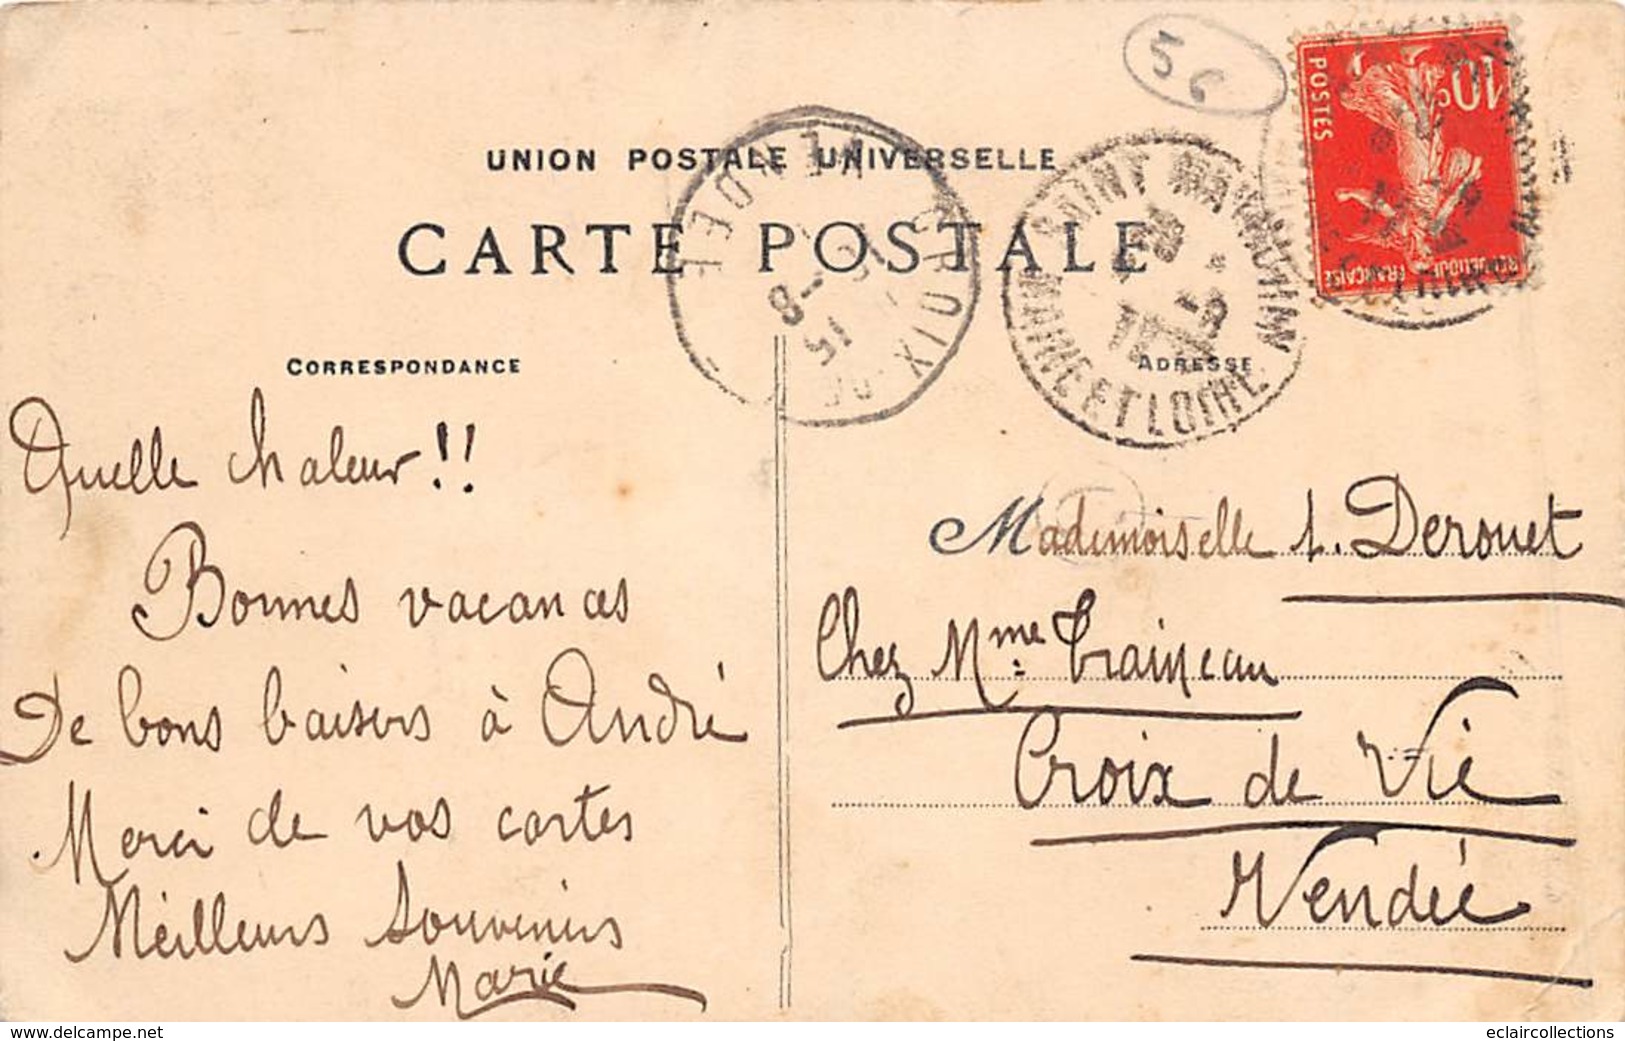 56
UNION POSTALE UNIVERSELLE
CARTE POSTALE
CORRESPONDANCE
ADRESSE
10c
POSTES
REPUBLIQUE FRANÇAISE
VENDEE
CROIX DE
15-8
SAINT MATHURIN
MAINE ET LOIRE
Quelle chaleur!!
Bonnes vacances
De bons baisers à André
Merci de vos cartes
Meilleurs Souvenirs
Marie
Mademoiselle A. Derouet
Chez Mme Traineau
Croix de Vie
Vendée
www.delcampe.net
eclaircollections